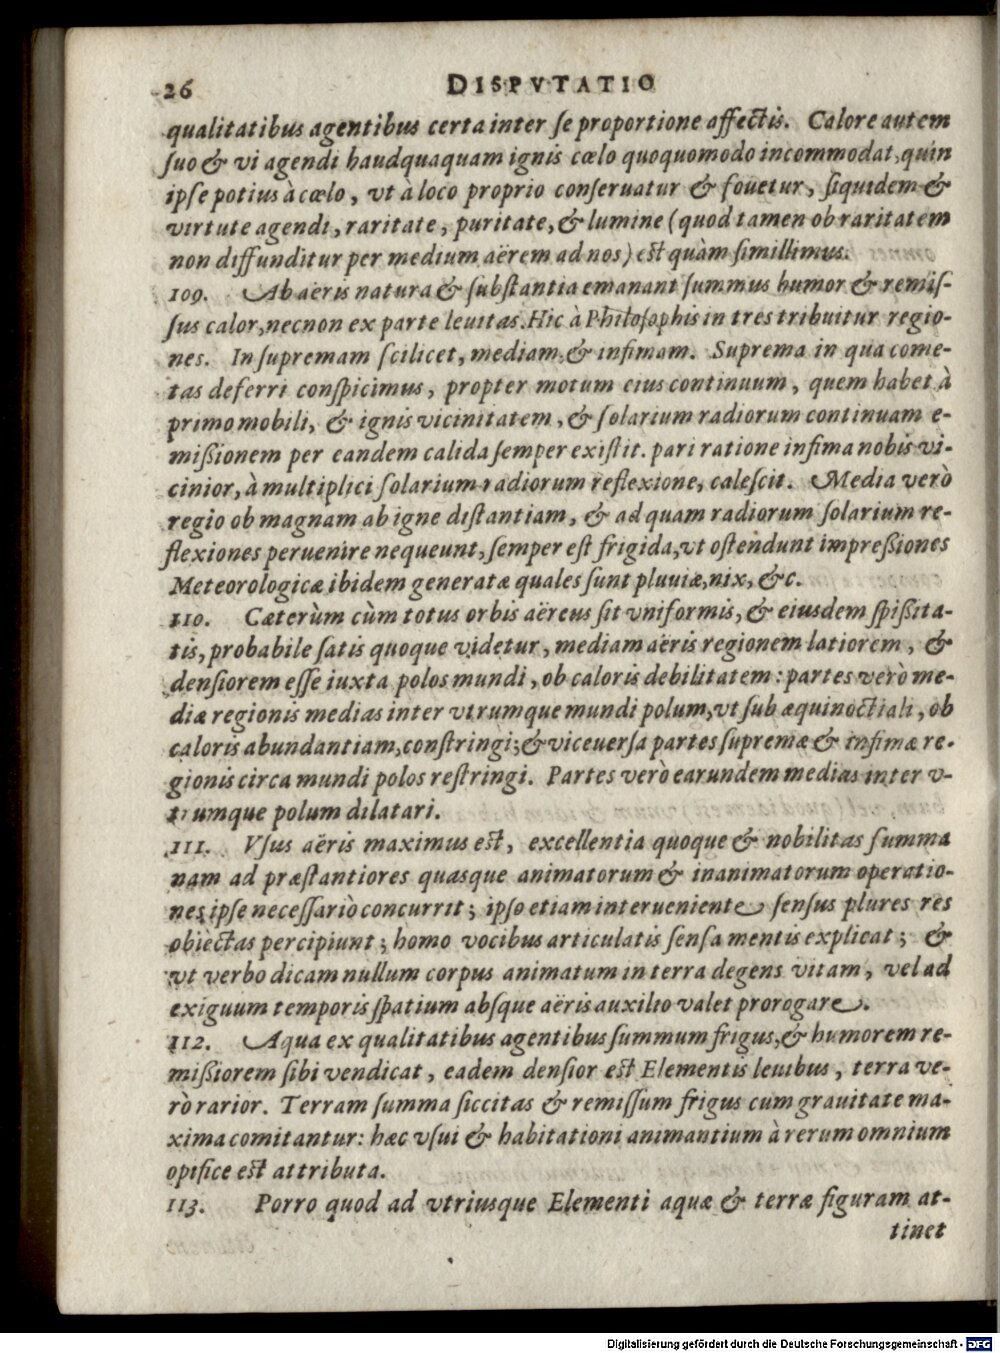 26 DISPVTATIO
qualitatibus agentibus certa inter ſe proportione affectis. Calore autem
ſuo & vi agendi haudquaquam ignis cœlo quoquomodo incommodat, quin
ipſe potius à cœlo, vt à loco proprio conſeruatur & fouetur, ſiquidem &
virtute agendi, raritate, puritate, & lumine (quod tamen ob raritatem
non diffunditur per medium aërem ad nos) est quàm ſimillimus.
109. Ab aëris natura & ſubſtantia emanant ſummus humor & remiſ-
ſus calor, necnon ex parte leuitas. Hic à Philoſophis in tres tribuitur regio-
nes. In ſupremam ſcilicet, mediam, & infimam. Suprema in qua come-
tas deferri conſpicimus, propter motum eius continuum, quem habet à
primo mobili, & ignis vicinitatem, & ſolarium radiorum continuam e-
mißionem per eandem calida ſemper exiſtit. pari ratione infima nobis vi-
cinior, à multiplici ſolarium radiorum reflexione, caleſcit. Media verò
regio ob magnam ab igne diſtantiam, & ad quam radiorum ſolarium re-
flexiones peruenire nequeunt, ſemper eſt frigida, vt oſtendunt impreßiones
Meteorologicæ ibidem generatæ quales ſunt pluuiæ, nix, &c.
110. Cæterùm cùm totus orbis aëreus ſit vniformis, & eiusdem ſpißita-
tis, probabile ſatis quoque videtur, mediam aëris regionem latiorem, &
denſiorem eſſe iuxta polos mundi, ob caloris debilitatem: partes verò me-
diæ regionis medias inter vtrumque mundi polum, vt ſub æquinoctiali, ob
caloris abundantiam, conſtringi; & viceuerſa partes ſupremæ & infimæ re-
gionis circa mundi polos reſtringi. Partes verò earundem medias inter v-
trumque polum dilatari.
111. Vſus aëris maximus est, excellentia quoque & nobilitas ſumma
nam ad præſtantiores quasque animatorum & inanimatorum operatio-
nes ipſe neceſſariò concurrit; ipſo etiam interueniente ſenſus plures res
obiectas percipiunt; homo vocibus articulatis ſenſa mentis explicat; &
vt verbo dicam nullum corpus animatum in terra degens vitam, vel ad
exiguum temporis ſpatium abſque aëris auxilio valet prorogare.
112. Aqua ex qualitatibus agentibus ſummum frigus, & humorem re-
mißiorem ſibi vendicat, eadem denſior est Elementis leuibus, terra ve-
rò rarior. Terram ſumma ſiccitas & remiſſum frigus cum grauitate ma-
xima comitantur: hæc vſui & habitationi animantium à rerum omnium
opifice est attributa.
113. Porro quod ad vtriusque Elementi aquæ & terræ figuram at-
tinet
Digitalisierung gefördert durch die Deutsche Forschungsgemeinschaft - DFG